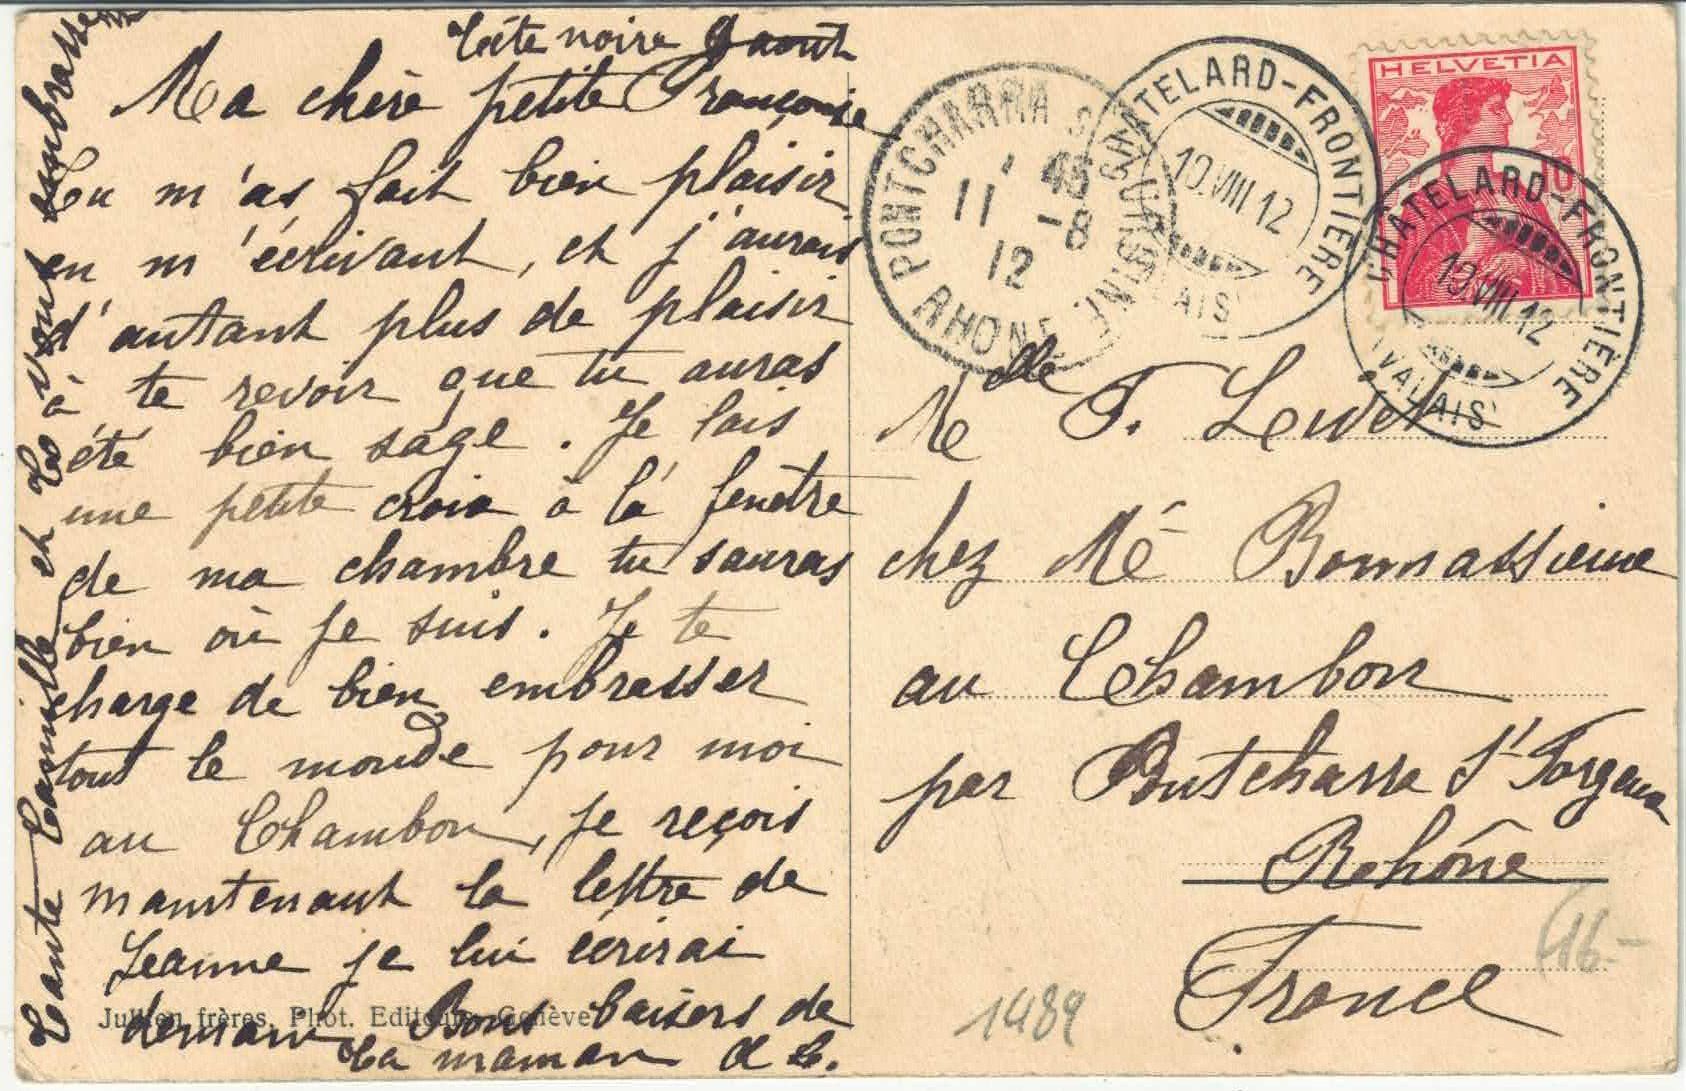 Tête noire 9 aout
Ma chère petite Françoise
Tu m'as fait bien plaisir
en m'écrivant, et j'aurais
d'autant plus de plaisir
à te revoir que tu auras
été bien sage. Je fais
une petite croix à la fenêtre
de ma chambre tu sauras
bien où je suis. Je te
charge de bien embrasser
tout le monde pour moi
au Chambon, je reçois
maintenant la lettre de
Jeanne je lui écrirai
demain Bons baisers de
ta maman
Tante Camille et les vont embrassent
Jullien frères, Phot. Editeurs, Genève
PONTCHARRA S TURDINE
1 45
11 -8
12
RHONE
CHÂTELARD-FRONTIÈRE
10.VIII.12
(VALAIS)
CHÂTELARD-FRONTIÈRE
10.VIII.12
(VALAIS)
HELVETIA
10
Melle F.
chez Me Bonnassieux
au Chambon
par Pontcharra St Forgeux
Rhône
France
16.-
1489